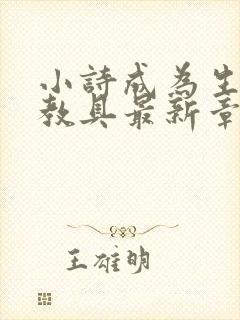 小詩成為生
教具最新章
王雄明